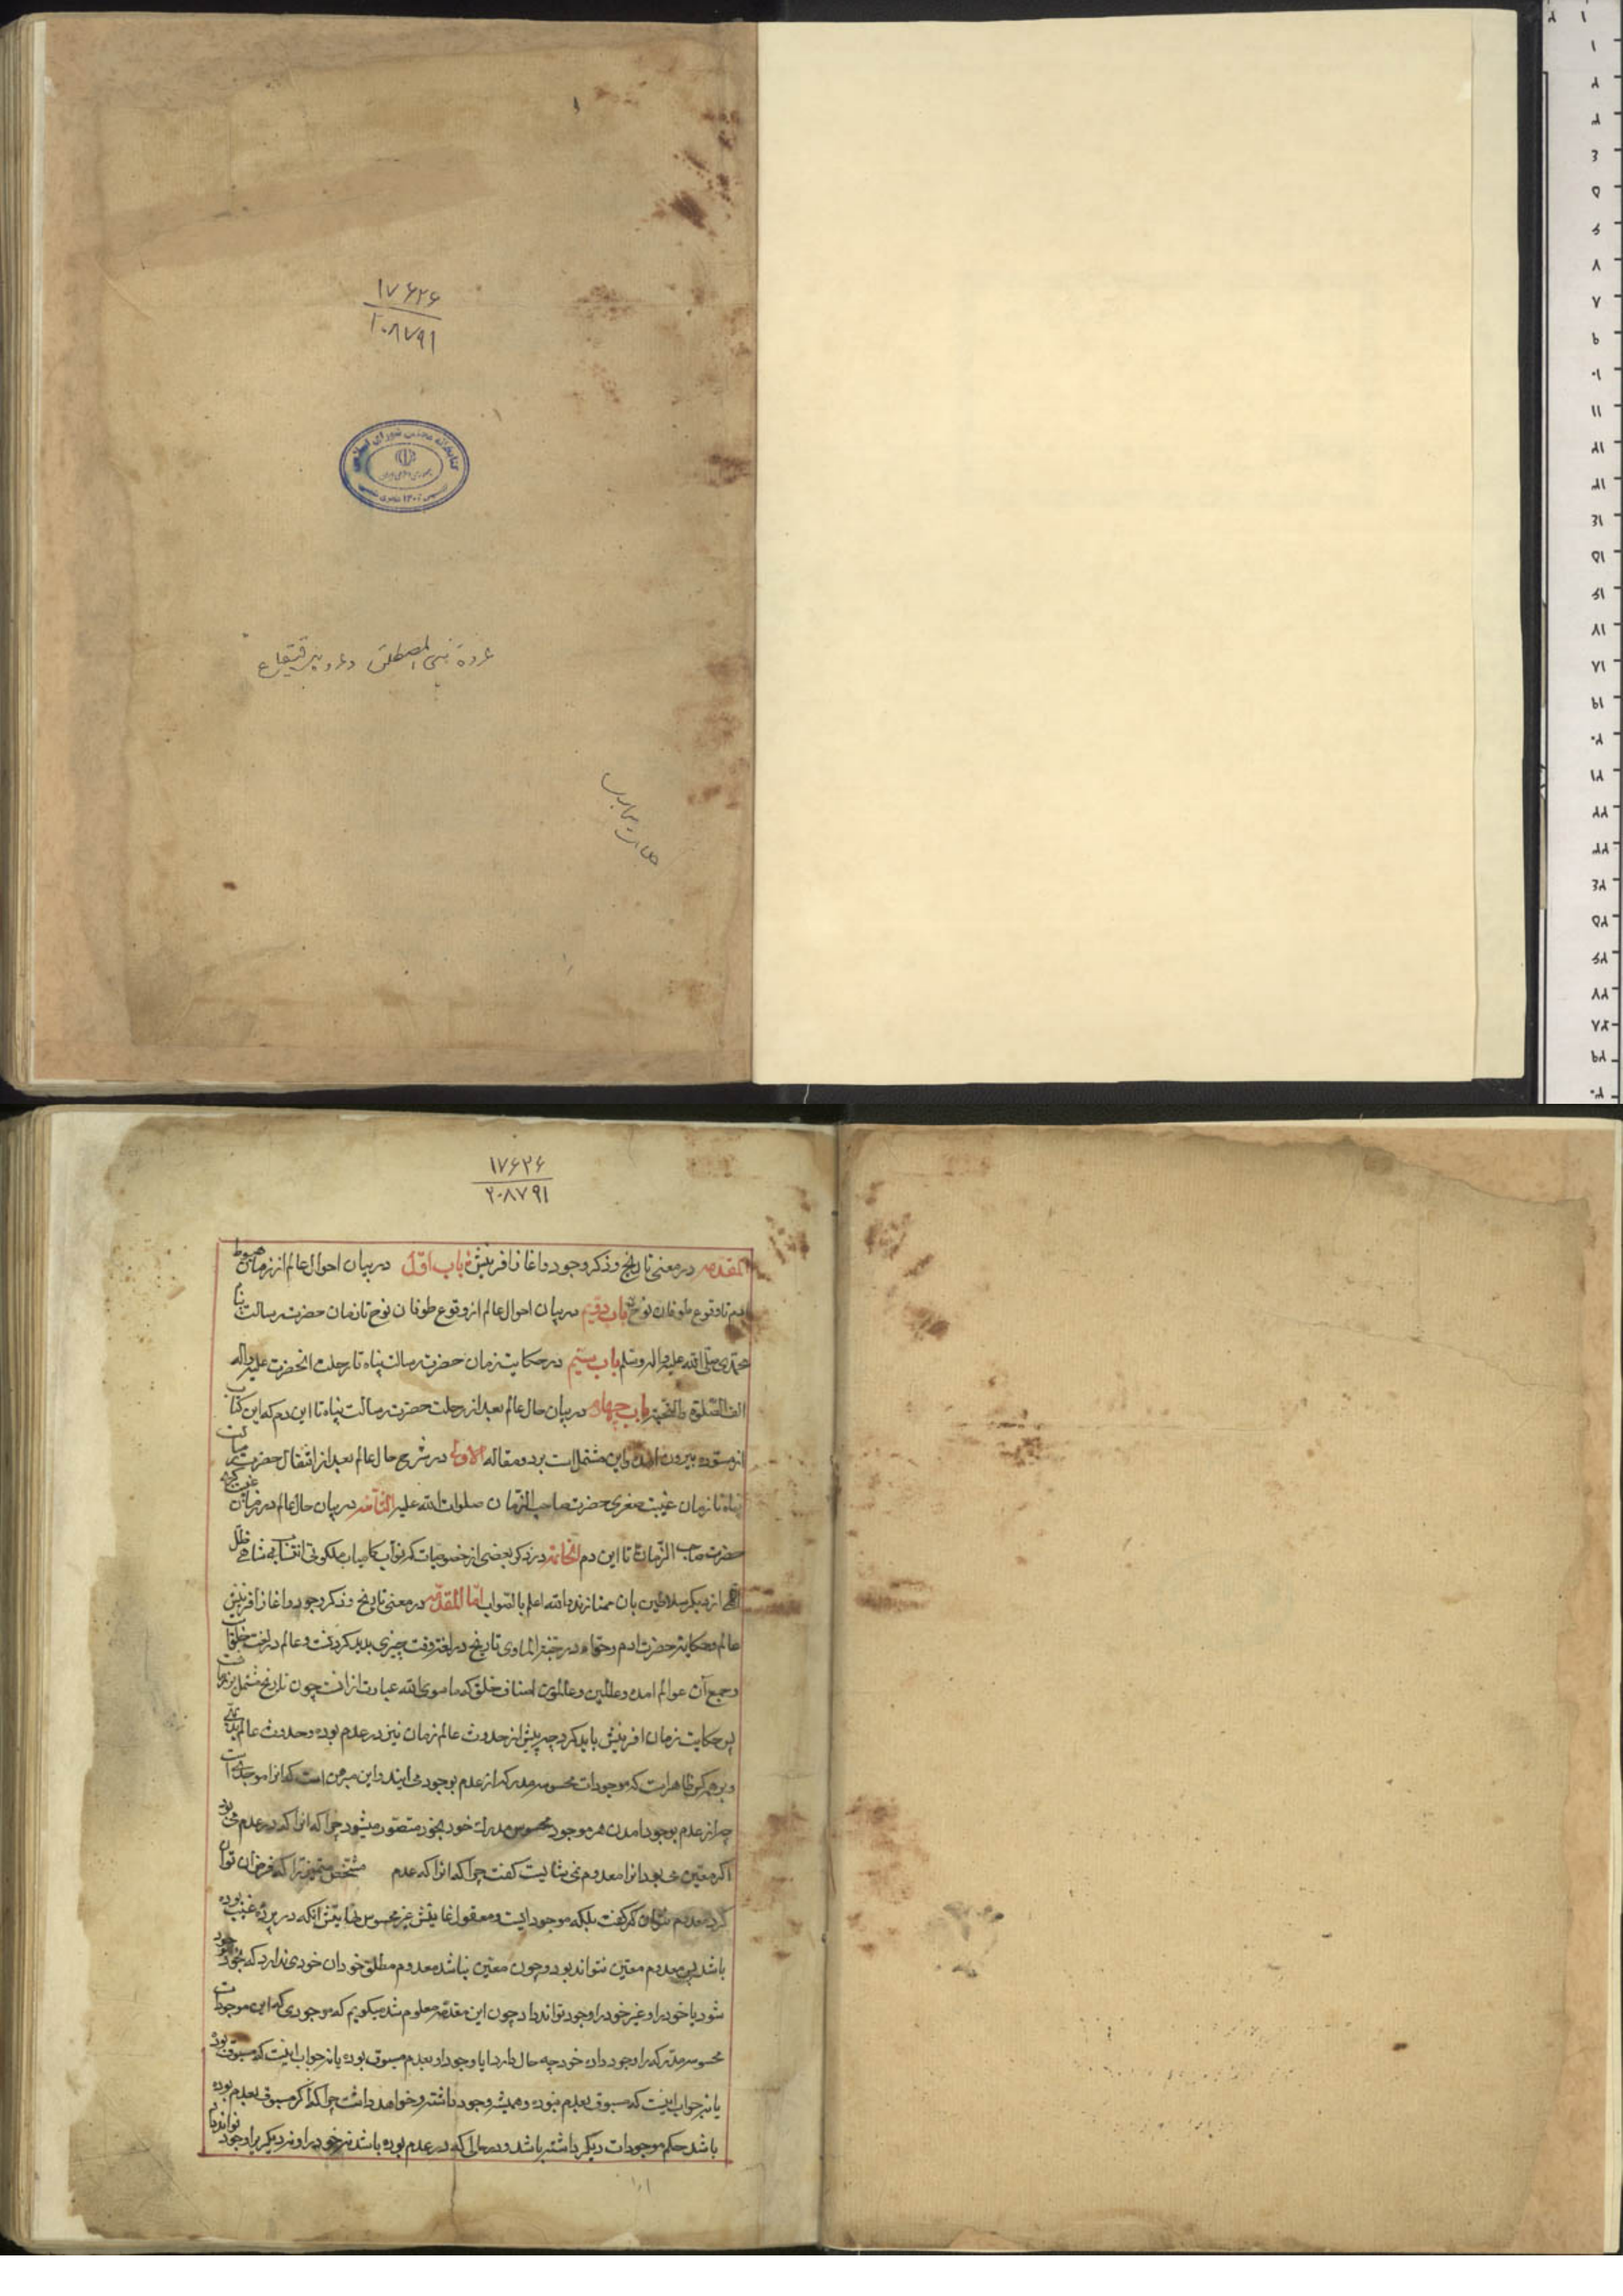 ۱۷۶۲۶
۲۰۸۷۹۱
کتابخانه مجلس شورای اسلامی
غزوة بنی المصطلق و غزوه بنی قینقاع
۱۷۶۲۶
۲۰۸۷۹۱
المقدمه در معنی تاریخ و ذکر وجود و اغاز افرینش باب اوّل در بیان احوال عالم از زمان هبوط
ادم تا وقوع طوفان نوح باب دویّم در بیان احوال عالم از وقوع طوفان نوح تا زمان حضرت رسالت پناه
محمّدی صلّی الله علیه واله وسلم باب سیّم در حکایت زمان حضرت رسالت پناه تا رحلت انحضرت علیه واله
الف الصّلوة والتحیّه باب چهارم در بیان حال عالم بعد از رحلت حضرت رسالت پناه تا این دم که این کتاب
از مسوّده بیرون امده و این مشتمل است بر دو مقاله الاولی در شرح حال عالم بعد از انتقال حضرت رسالت
پناه تا زمان غیبت صغری حضرت صاحب الزمان صلوات الله علیه الثانیه در بیان حال عالم در زمان غیبت
حضرت صاحب الزّمان تا این دم الخاتمه در ذکر بعضی از خصوصیات که نوّاب کامیاب ملکوتی انتساب شاهی ظلّ
الهی از دیگر سلاطین بان ممتازند والله اعلم بالصّواب امّا المقدّمه در معنی تاریخ و ذکر وجود و اغاز افرینش
عالم و حکایت حضرت ادم و حوّا در جنّة الماوی تاریخ در لغت وقت چیزی پدید کردنست و عالم در لغت مخلوقات
و جمع آن عوالم امده و عالمین و عالمون اصناف خلق که ما سوی الله عبارت از انست چون تاریخ مشتمل بر زمانست
پس حکایت زمان افرینش باید کرد چه پیش از حدوث عالم زمان نیز در عدم بوده و حدوث عالم
که موجودات محسوسه مدرکه از عدم بوجود می ایند و این مبرهن است که انرا موجدی است
چه از عدم بوجود امدن هر موجود محسوس مدرک خود بخود متصوّر میشود چرا که انرا که در عدم می بود
اگر معیّن می بود انرا معدوم نمی شایست کفت چرا که انرا که عدم مشخّص
کرد معدوم نتوان کفت بلکه موجود است و معقول غایتش غیر محسوس نهایتش انکه در پرده غیب بوده
باشد پس معدوم معیّن نتواند بود و چون معیّن نباشد معدوم مطلق خود ان خودی ندارد که بخود موجود
شود یا خود را و غیر خود را وجود تواند داد چون این مقدّمه معلوم شد میکویم که موجودی که این موجودات
محسوسه مدرکه را وجود داده خود چه حال دارد ایا وجود او بعدم مسبوق بوده یا نه جواب اینست که مسبوق بوده
یا نه جواب اینست که مسبوق بعدم نبوده و همیشه وجود داشته و خواهد داشت چرا که اگر مسبوق بعدم بوده
باشد حکم موجودات دیگر داشته باشد و در حالی که در عدم بوده باشد نه خود را و نه دیگر را وجود تواند داد